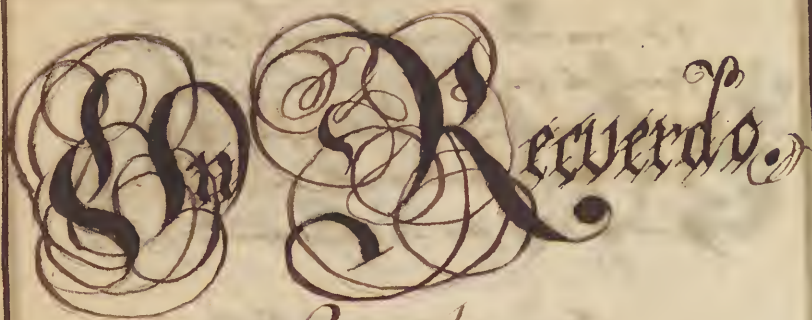 Un Recuerdo.